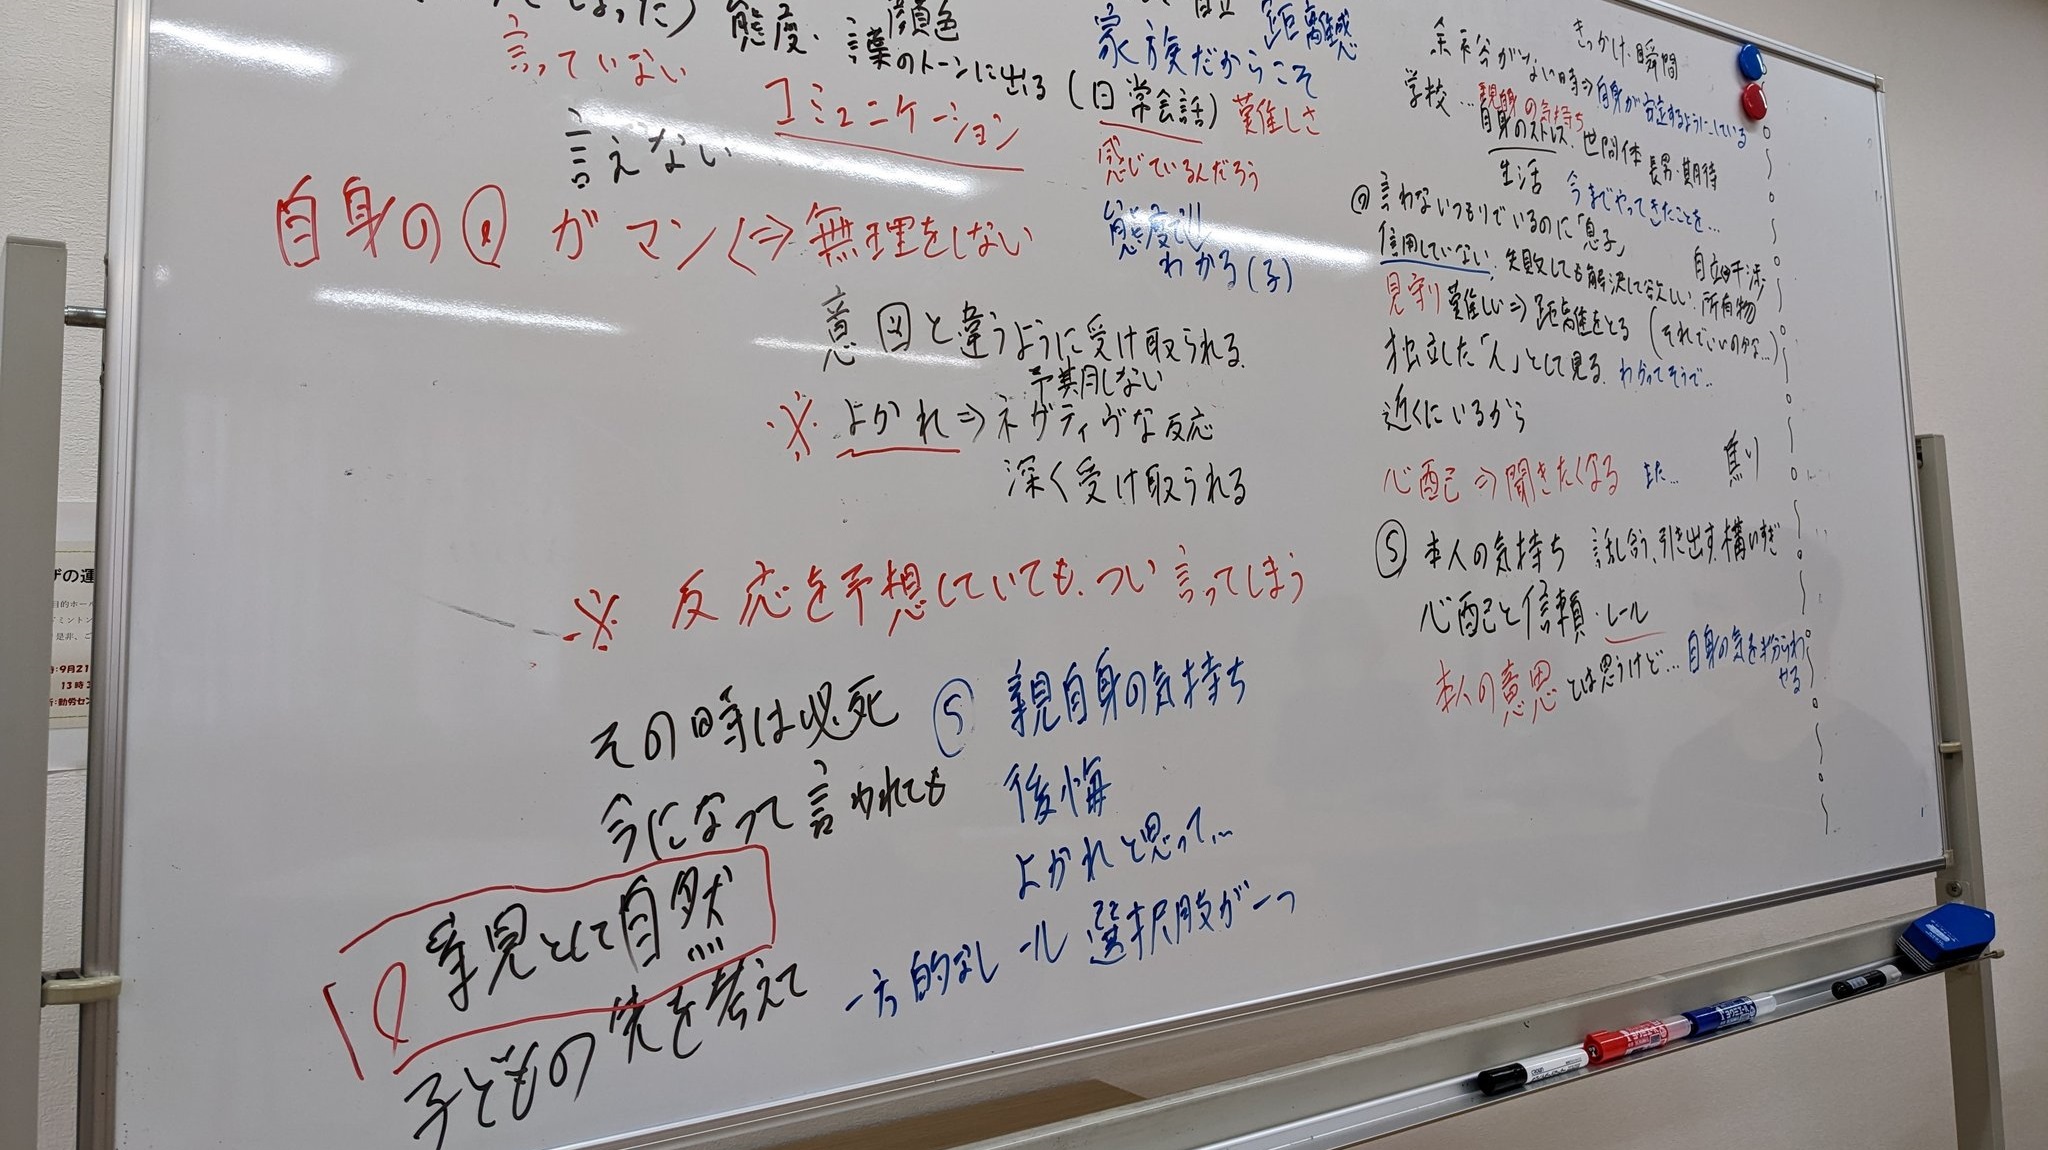 態度・顔色
言葉のトーンに出る
言っていない
コミュニケーション
言えない
自身の
ガマン⇔無理をしない
距離感
家族だからこそ
(日常会話)難しさ
感じているんだろう
態度で
わかる(子)
意図と違うように受け取られる
予期しない
※よかれ⇒ネガティヴな反応
深く受け取られる
※反応を予想していても、つい言ってしまう
その時は必死
今になって言われても
親として自然
子どもの先を考えて
⑤親自身の気持ち
後悔
よかれと思って...
一方的なレール 選択肢が一つ
きっかけ・瞬間
余裕がない時⇒自身が安定するようにしている
学校...親自身の気持ち
自身のストレス、世間体 長男・期待
生活 今までやってきたことを...
言わないつもりでいるのに「息子」
信用していない、失敗しても解決して欲しい、所有物
自立 干渉
見守り難しい⇒距離をとる(それでいいのかな...)
独立した「人」として見る、わかってそうで...
近くにいるから
心配⇒聞きたくなる また... 焦り
⑤本人の気持ち 話し合う、引き出す、構いすぎ
心配と信頼・レール
本人の意思とは思うけど...自身の気を
まぎらわせる
9月21